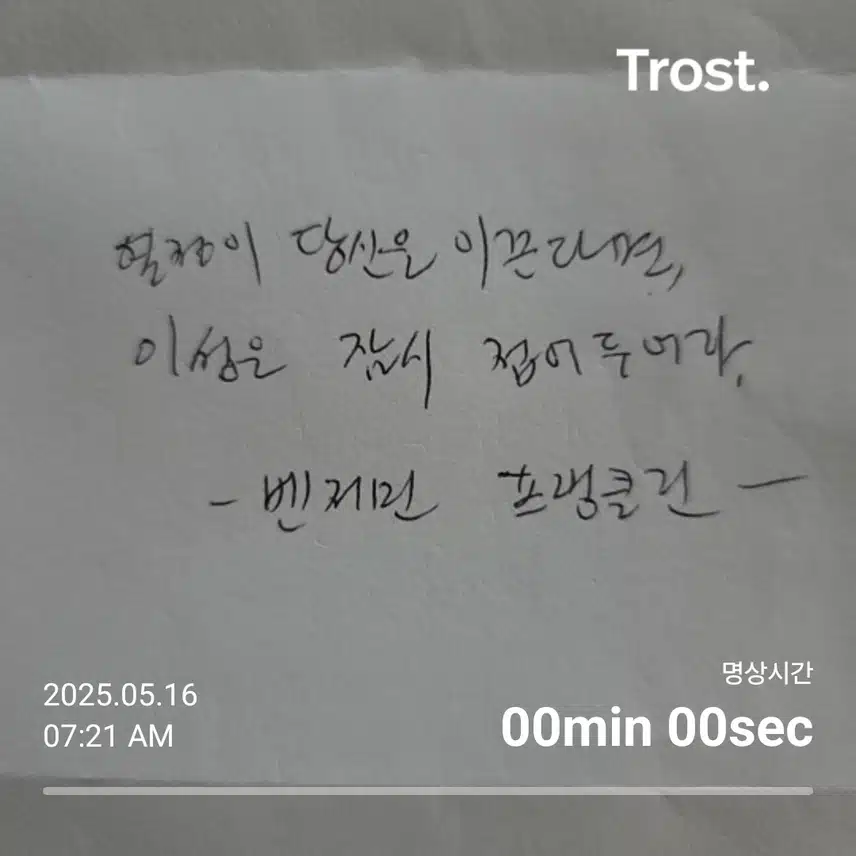 Trost.
열정이 당신은 이끈다면,
이성은 잠시 접어두어라.
- 벤저민 프랭클린 -
명상시간
2025.05.16
00min 00sec
07:21 AM